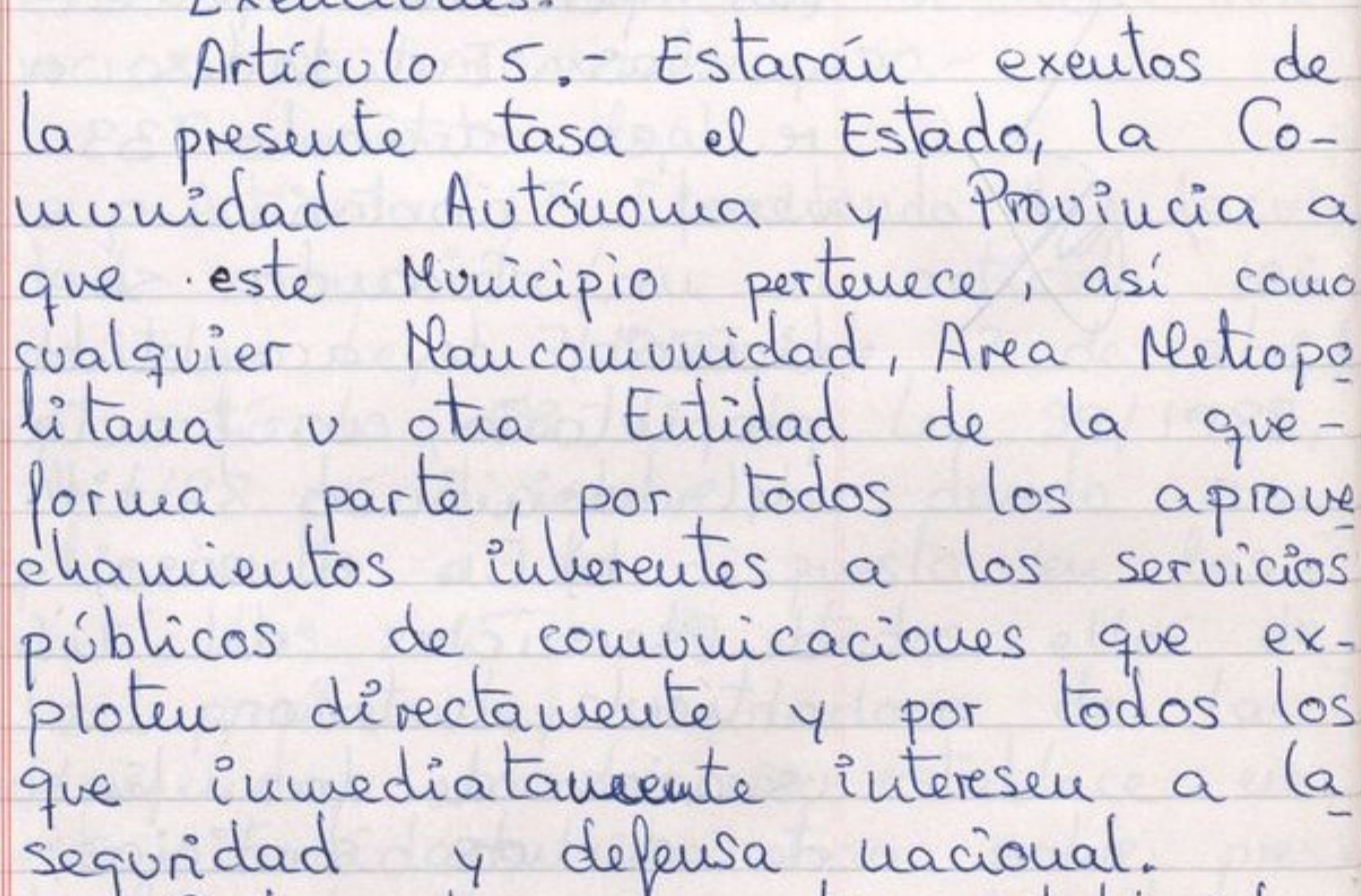 Exenciones.
Artículo 5.- Estarán exentos de
la presente tasa el Estado, la Co-
munidad Autónoma y Provincia a
que este Municipio pertenece, así como
cualquier Mancomunidad, Area Metropo
litana u otra Entidad de la que-
forma parte, por todos los aprove
chamientos inherentes a los servicios
públicos de comunicaciones que ex-
ploten directamente y por todos los
que inmediatamente interesen a la
seguridad y defensa nacional.